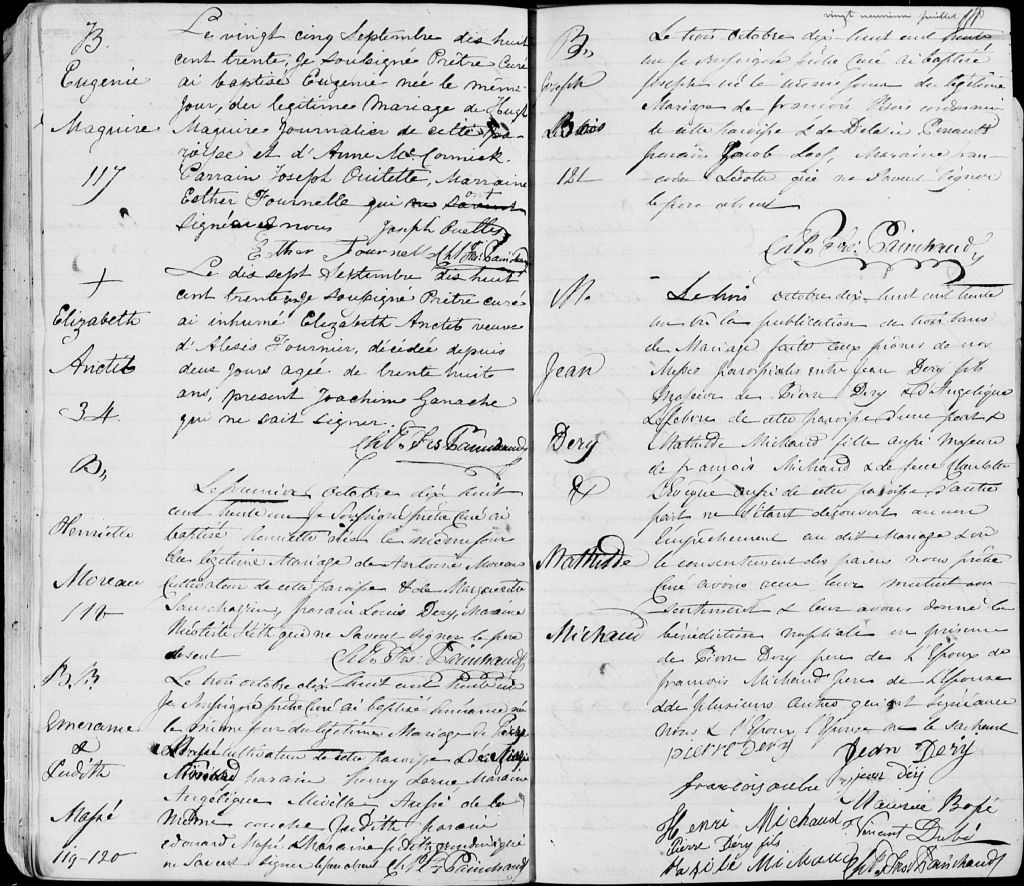 B.
Eugenie
Maguire
117
Le vingt cinq Septembre dix huit
cent trente, Je soussigné Prêtre Curé
ai baptisé Eugenie née le même
jour, du legitime Mariage de Hugh
Maguire Journalier de cette pa-
roisse et d'Anne Mc Cormick.
Parrain Joseph Ouilette, Marraine
Esther Fournelle qui ont
signé avec nous Joseph Ouellet
Esther Fournel
+
Elizabeth
Anctil
34.
Le dix sept Septembre dix huit
cent trente un Je Soussigné Prêtre curé
ai inhumé Elizabeth Anctil veuve
d'Alexis Fournier, décédée depuis
deux jours agée de trente huit
ans, present Joachim Ganache
qui ne sait signer.
Chs. Frs Painchaud
B.
Henriette
Moreau
118
Le premier octobre dix huit
cent trente un Je Soussigné prêtre Curé ai
baptisé henriette née le même jour
du légitime Mariage de Antoine Moreau
Cultivateur de cette paroisse & de Marguerite
parain Louis Dery, Maraine
que ne Savent Signer le pere
absent Chs. Frs. Painchaud
B.B.
Emerance
&
Judith
Massé
119-120
Le trois octobre dix huit cent trente un
Je Soussigné prêtre Curé ai baptisé
le même jour du légitime Mariage de
cultivateur de cette paroisse &
parain henry Maraine
Angélique Miville Aussi de la
Même couche Judith parain
edouard Massé Maraine
ne Savent Signer le pere absent Painchaud
vingt neuvième Juillet
B.
Joseph
Bois
121
Le trois octobre dix huit cent trente
un Je Soussigné prêtre Curé ai baptisé
Joseph né le même jour du légitime
Mariage de francois Bois cordonnier
de cette paroisse & de
parain Jacob Maraine
qui ne Savent Signer
le pere absent
Painchaud
M.
Jean
Dery
&
Mathilde
Michaud
Le trois octobre dix huit cent trente
un vu la publication de trois bans
de Mariage faite aux prônes de nos
Messes paroissiales entre jean Dery fils
majeur de Pierre Dery & d'Angelique
Lefebvre de cette paroisse d'une part &
Mathilde Michaud fille aussi majeure
de françois Michaud & de feue Charlotte
aussi de cette paroisse d'autre
part ne S'étant découvert aucun
Empêchement au dit Mariage &
le consentement des parens nous prêtre
Curé avons recu leur mutuel con-
sentiment & leur avons donné la
bénédiction nuptiale en présence
de Pierre Dery pere de L'Epoux de
francois Michaud pere de L'Epouse
& de plusieurs autres qui ont signé avec
nous & l'Epoux l'Epouse ne le sachant
pierre Dery Jean Dery
jean
Maurice
Henri Michaud Vincent Dubé
Pierre Dery fils
Basile Michaud Painchaud